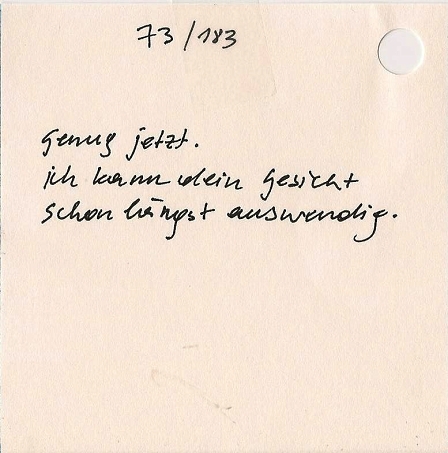 73/183
genug jetzt.
ich kann dein gesicht
schon längst auswendig.